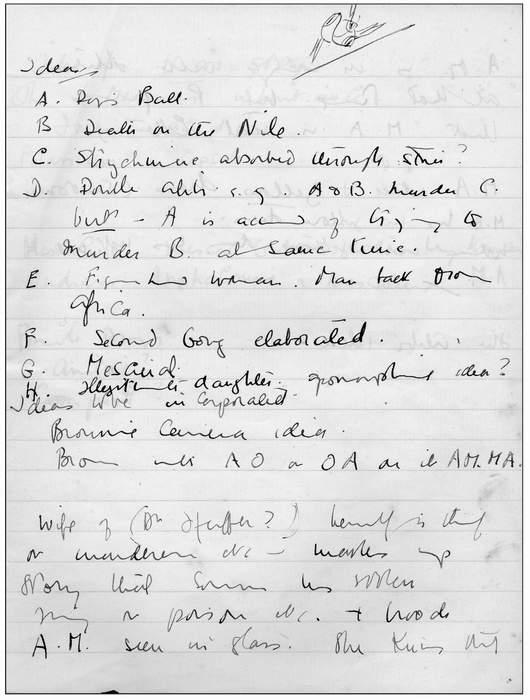 Ideas
A. Poison Ball.
B Death on the Nile.
C. Strychnine absorbed through skin?
D. Double alibi e.g. A & B. murder C.
but – A is accused of trying to
murder B. at same time.
E. Figurehead woman. Man back from
Africa.
F. Second Gong elaborated.
G. Mescaline.
H. Illegitimate daughter. apomorphine idea?
Ideas to be incorporated
Brownie Camera idea.
Brooch with A O or O A on it AM. MA.
Wife of (Dr ?) herself is thief
or murderer etc – makes up
story that someone has stolen
or poison etc. +
A.M. seen in glass. She knows that